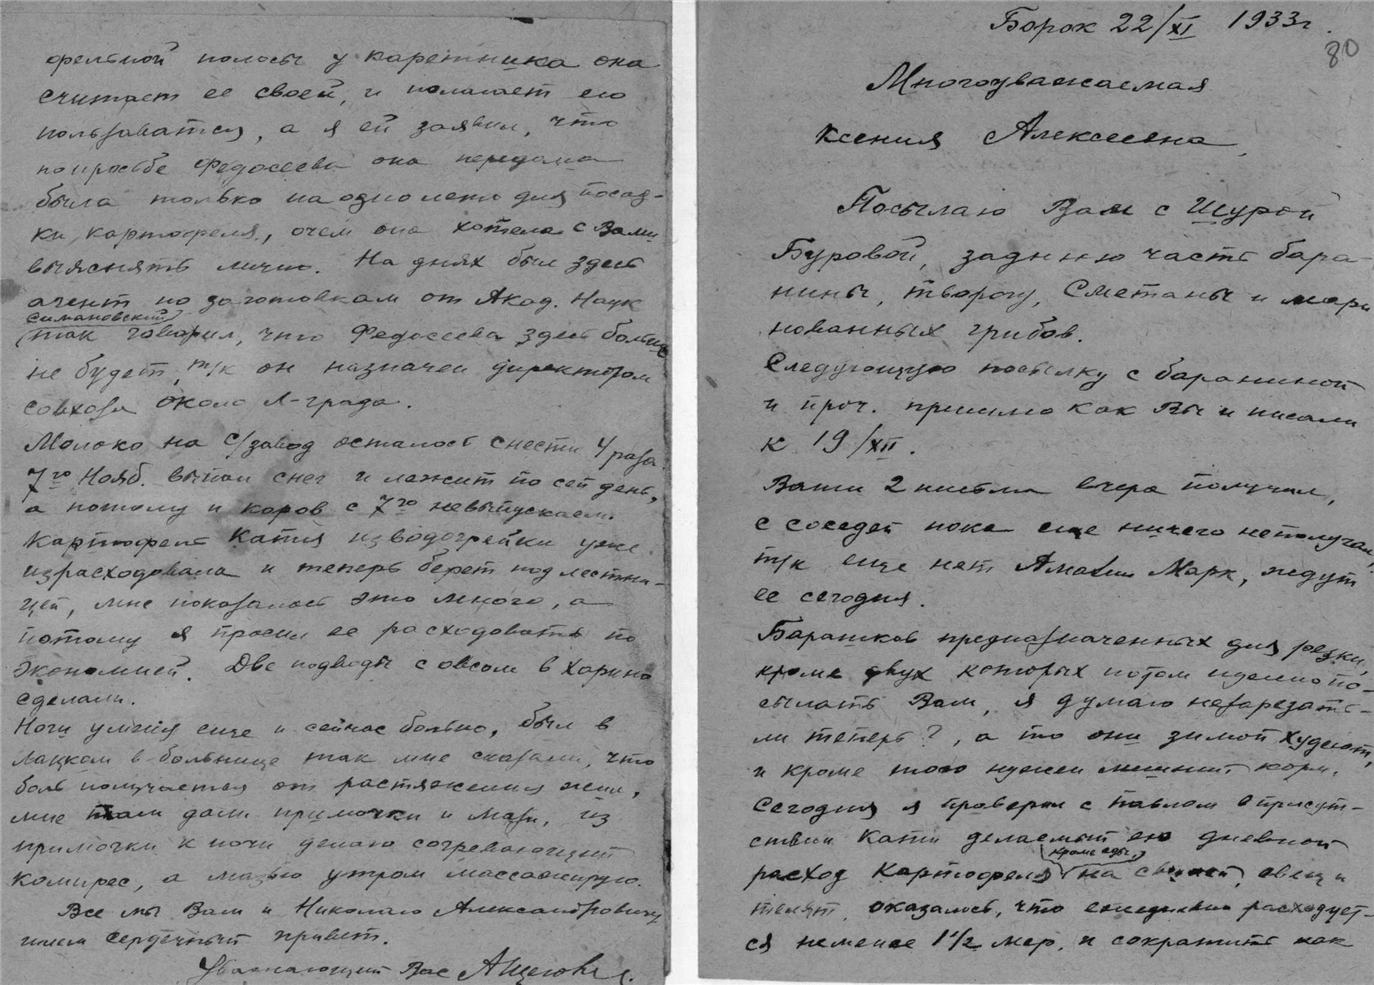 фельной полосы у каретника она
считает ее своей, и полагает ею
пользоваться, а я ей заявил, что
по просьбе Федосеева она передана
была только на одно лето для посад-
ки картофеля, о чем она хотела с Вами
выяснять лично. На днях был здесь
агент по заготовкам от Акад. Наук
Симановский
так говорил, что Федосеева здесь больше
не будет, т/к он назначен директором
совхоза около Л-града.
Молоко на с/завод осталось снести 4 раза.
7го Нояб. выпал снег и лежит по сей день,
а потому и коров с 7го невыпускаем.
Картофель Катя из водогрейки уже
израсходовала и теперь берет под лестни-
цей, мне показалось это много, а
потому я просил ее расходовать по
экономней. Две подводы с овсом в Харино
сделали.
Ноги у меня еще и сейчас больно, был в
Лацком в больнице так мне сказали, что
боль получается от растяжения жил,
мне там дали примочки и мази, из
примочки к ночи делаю согревающий
компрес, а мазью утром массажирую.
Все мы Вам и Николаю Александровичу
шлем сердечный привет.
Уважающий Вас А Щегов
Борок 22/XI 1933г.
80
Многоуважаемая
Ксения Алексеевна,
Посылаю Вам с Шурой
Буровой, заднюю часть бара-
нины, творогу, Сметаны и мари
нованных грибов.
Следующую посылку с бараниной
и проч. пришлю как Вы и писали
к 19/XII.
Ваши 2 письма вчера получил,
с соседей пока еще ничего неполучал,
т/к еще нет Амалии Марк, ждут
ее сегодня.
Барашков предназначенных для резки,
кроме двух которых потом надо по-
сылать Вам, я думаю незарезать-
ли теперь?, а то они зимой худеют,
и кроме того нужен лишний корм.
Сегодня я проверил с Павлом в присут-
ствии Кати делаемый ею дневной
кроме еды
расход Картофеля на свиней, овец и
телят, оказалось, что ежедневно расходует-
ся неменее 1 1/2 мер, и сократить как